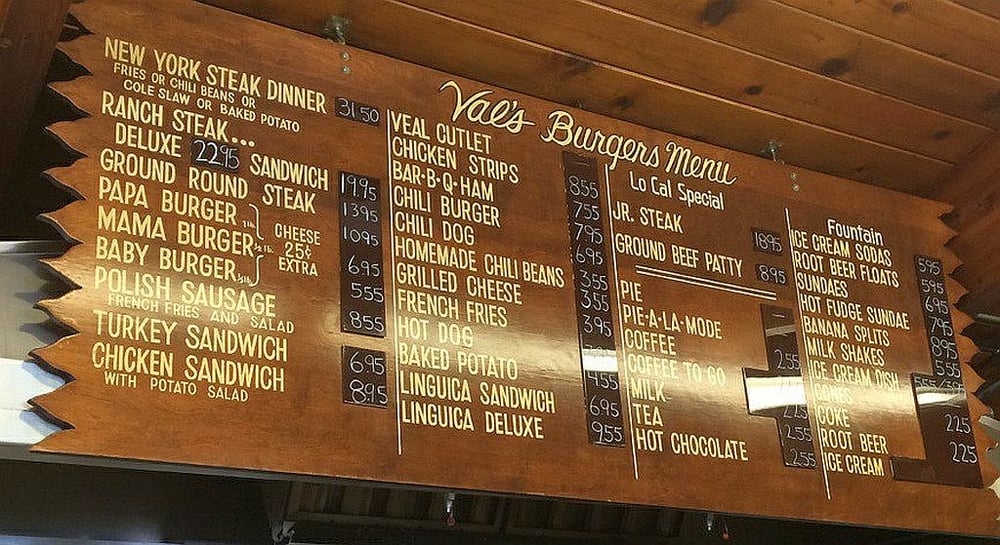 Val's Burgers Menu
NEW YORK STEAK DINNER 31.50
FRIES OR CHILI BEANS OR
COLE SLAW OR BAKED POTATO
RANCH STEAK...
DELUXE 22.95 SANDWICH 19.95
GROUND ROUND STEAK 13.95
PAPA BURGER 1 lb. 10.95
MAMA BURGER CHEESE 25¢ EXTRA 6.95
BABY BURGER 5.55
POLISH SAUSAGE 8.55
FRENCH FRIES AND SALAD
TURKEY SANDWICH 6.95
CHICKEN SANDWICH 8.95
WITH POTATO SALAD
VEAL CUTLET 8.55
CHICKEN STRIPS 7.55
BAR-B-Q-HAM 7.95
CHILI BURGER 6.95
CHILI DOG 3.55
HOMEMADE CHILI BEANS 3.55
GRILLED CHEESE 3.95
FRENCH FRIES
HOT DOG
BAKED POTATO 4.55
LINGUICA SANDWICH 6.95
LINGUICA DELUXE 9.55
Lo Cal Special
JR. STEAK 18.95
GROUND BEEF PATTY 8.95
PIE
PIE-A-LA-MODE
COFFEE 2.55
COFFEE TO GO
MILK
TEA 2.55
HOT CHOCOLATE 2.55
Fountain
ICE CREAM SODAS 5.95
ROOT BEER FLOATS 5.95
SUNDAES 6.95
HOT FUDGE SUNDAE 7.95
BANANA SPLITS 8.95
MILK SHAKES 5.55
ICE CREAM DISH
CONES
COKE 2.25
ROOT BEER 2.25
ICE CREAM